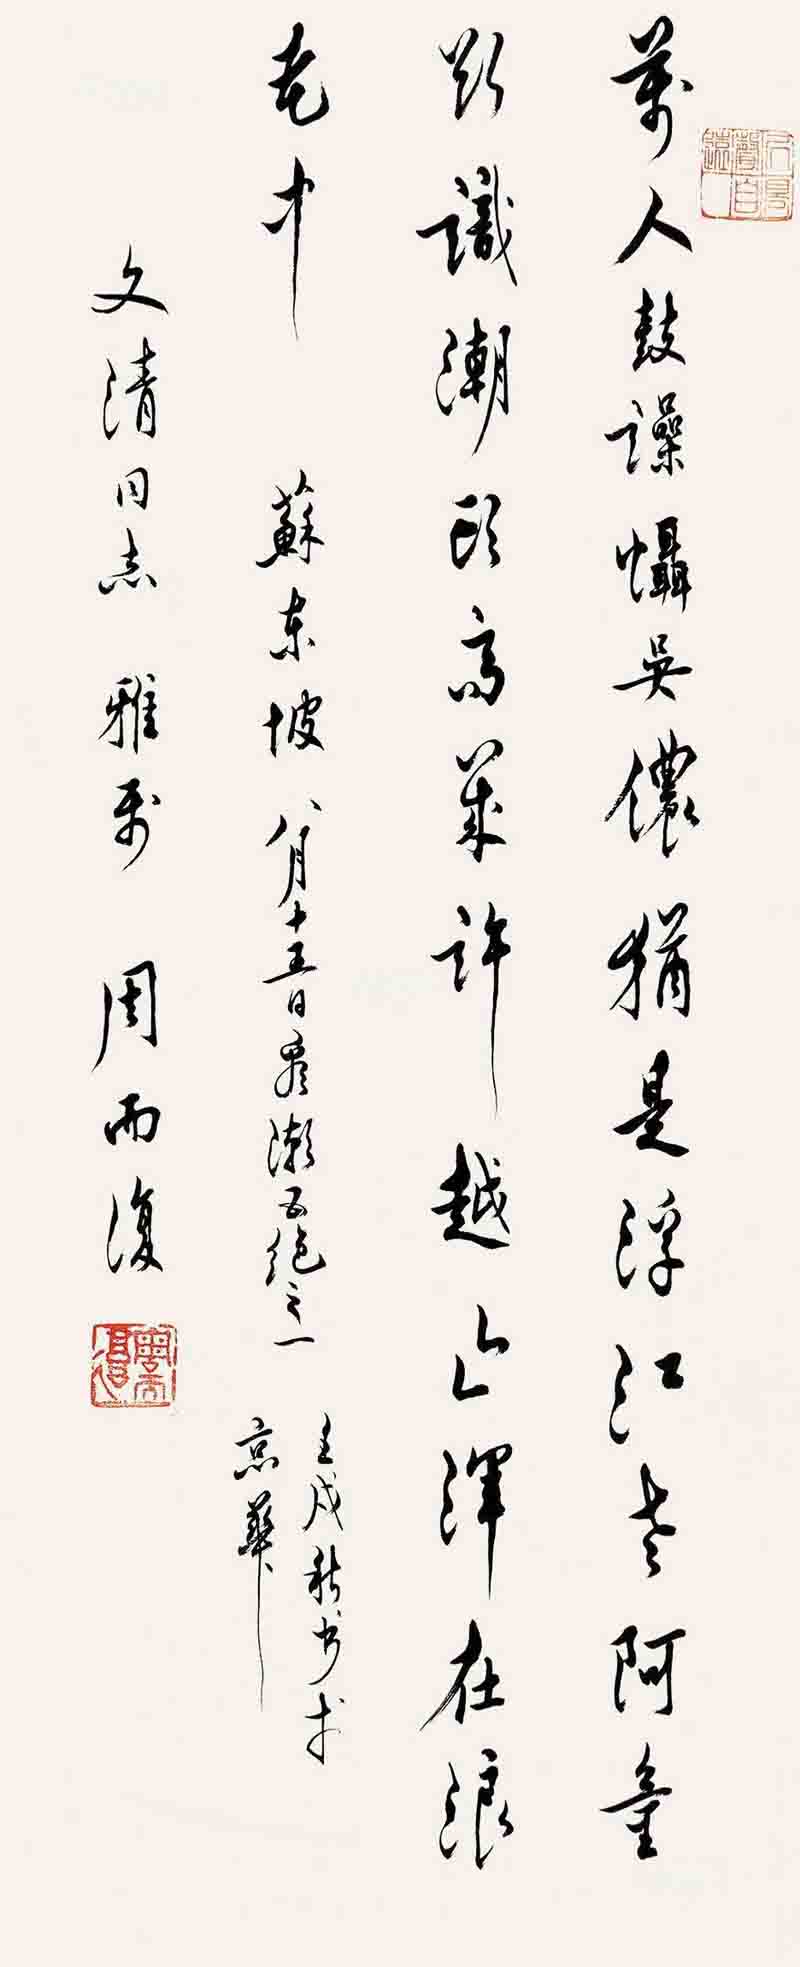 萬人鼓譟懾吳儂猶是浮江老阿童
欲識潮頭高幾許越山渾在浪
花中
蘇東坡八月十五日看潮五絕之一
壬戌秋書於
京華
文清同志 雅屬 周而復